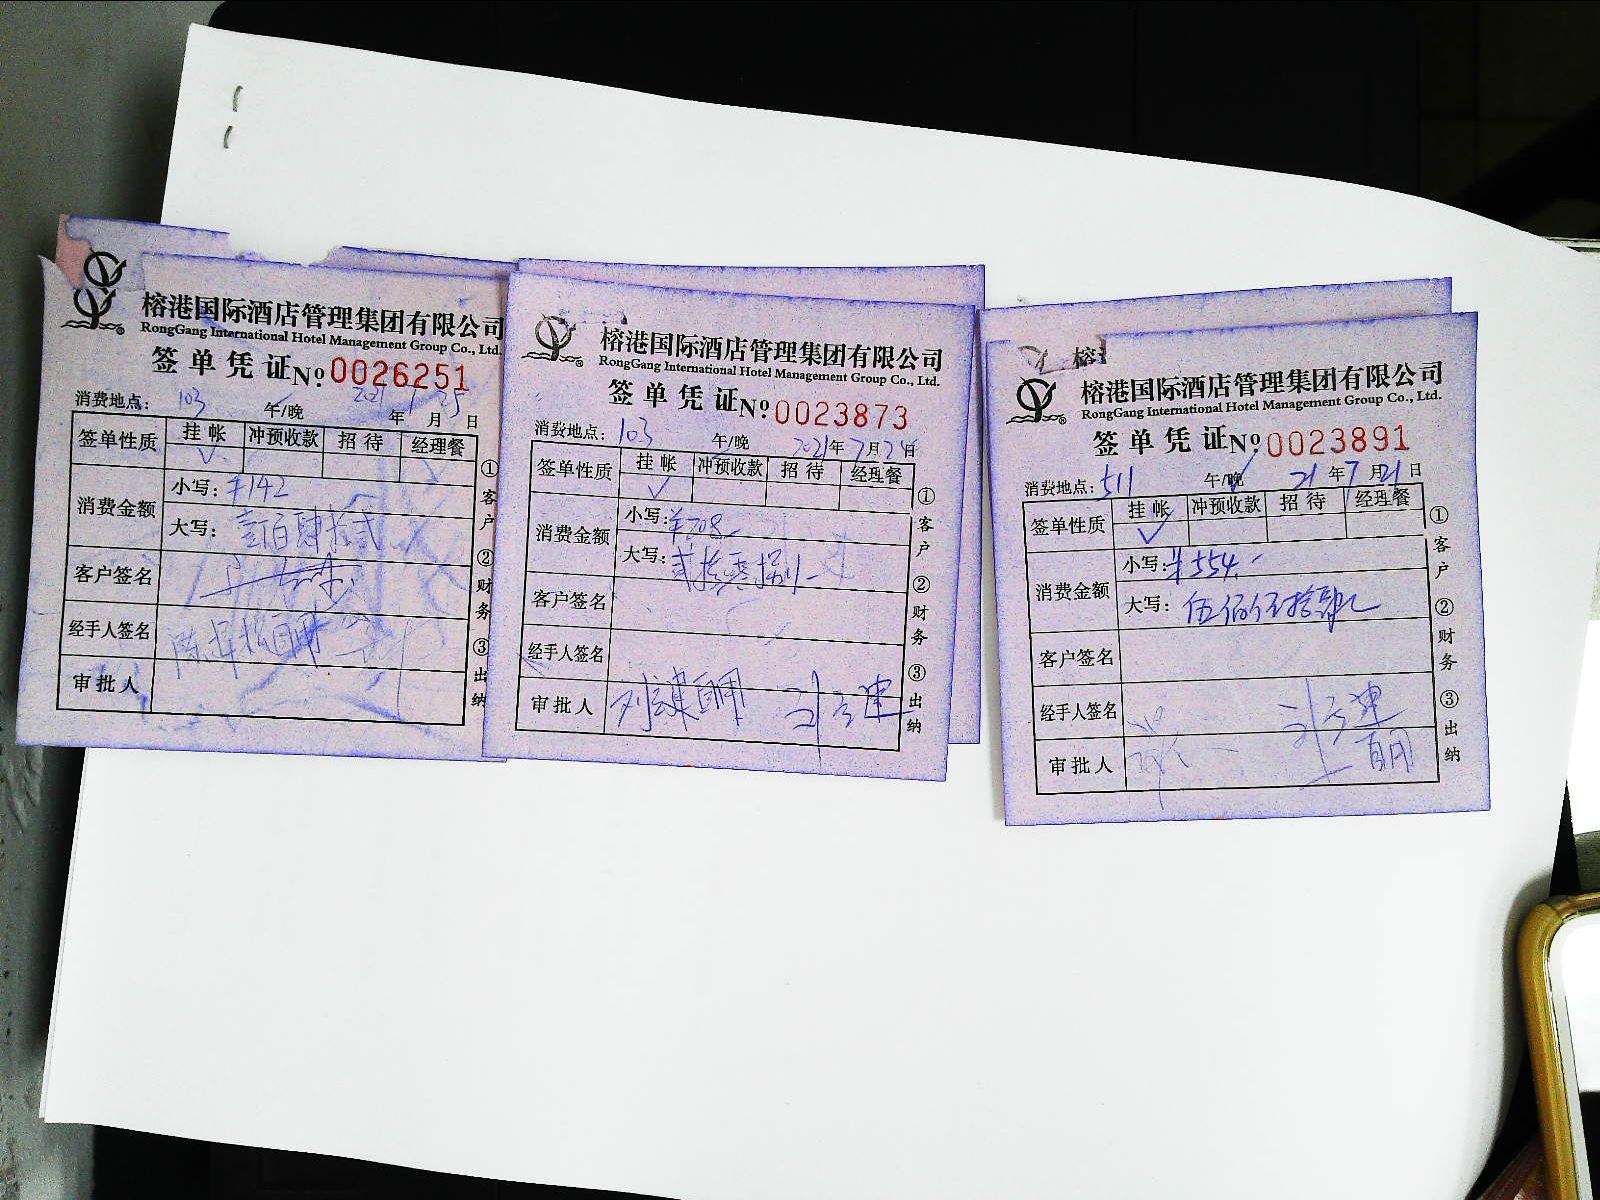 榕港国际酒店管理集团有限公司
RongGang International Hotel Management Group Co., Ltd.
签单凭证 №0026251
消费地点：103 午/晚 2021年 月25日
签单性质 挂帐 冲预收款 招待 经理餐
消费金额 小写：¥142
大写：壹佰肆拾贰
客户签名
经手人签名
审批人
①客户 ②财务 ③出纳
榕港国际酒店管理集团有限公司
RongGang International Hotel Management Group Co., Ltd.
签单凭证 №0023873
消费地点：103 午/晚 2021年7月24日
签单性质 挂帐 冲预收款 招待 经理餐
消费金额 小写：¥208
大写：贰拾零捌
客户签名
经手人签名
审批人
①客户 ②财务 ③出纳
榕
榕港国际酒店管理集团有限公司
RongGang International Hotel Management Group Co., Ltd.
签单凭证 №0023891
消费地点：511 午/晚 21年7月21日
签单性质 挂帐 冲预收款 招待 经理餐
消费金额 小写：¥554.-
大写：伍佰伍拾肆
客户签名
经手人签名
审批人
①客户 ②财务 ③出纳